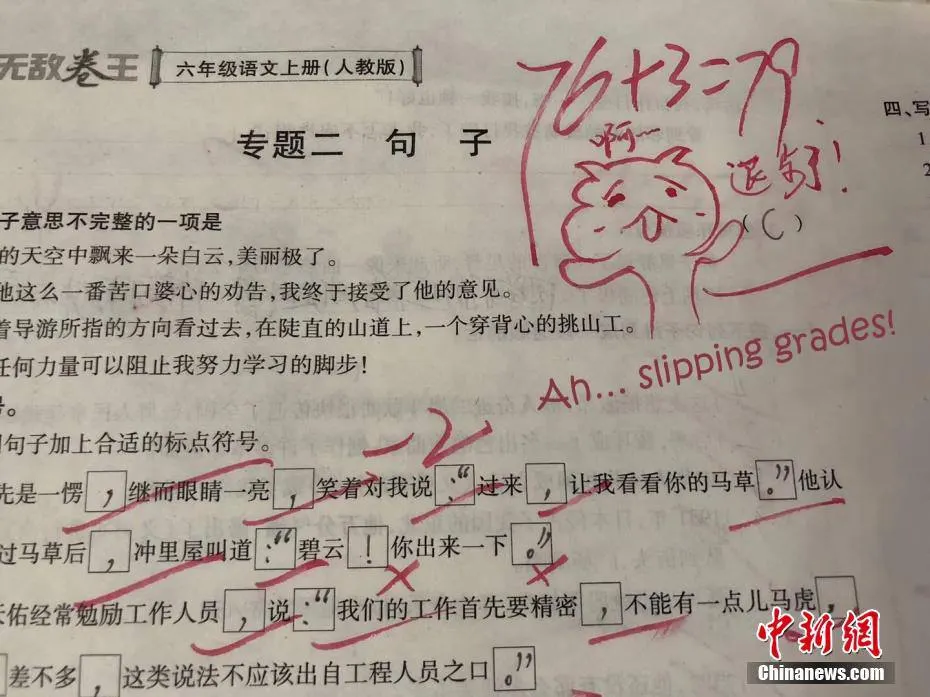 无敌卷王 六年级语文上册(人教版)
76+3=79
专题二 句 子
啊
退步了!
子意思不完整的一项是 (C)
的天空中飘来一朵白云,美丽极了。
他这么一番苦口婆心的劝告,我终于接受了他的意见。
着导游所指的方向看过去,在陡直的山道上,一个穿背心的挑山工。
任何力量可以阻止我努力学习的脚步!
号。
句子加上合适的标点符号。
-2
Ah... slipping grades!
先是一愣,继而眼睛一亮,笑着对我说:“过来,让我看看你的马草。”他认
过马草后,冲里屋叫道:“碧云!你出来一下。”
天佑经常勉励工作人员,说:“我们的工作首先要精密,不能有一点儿马虎,
差不多,这类说法不应该出自工程人员之口。”
四、写
1
2
中新网
Chinanews.com